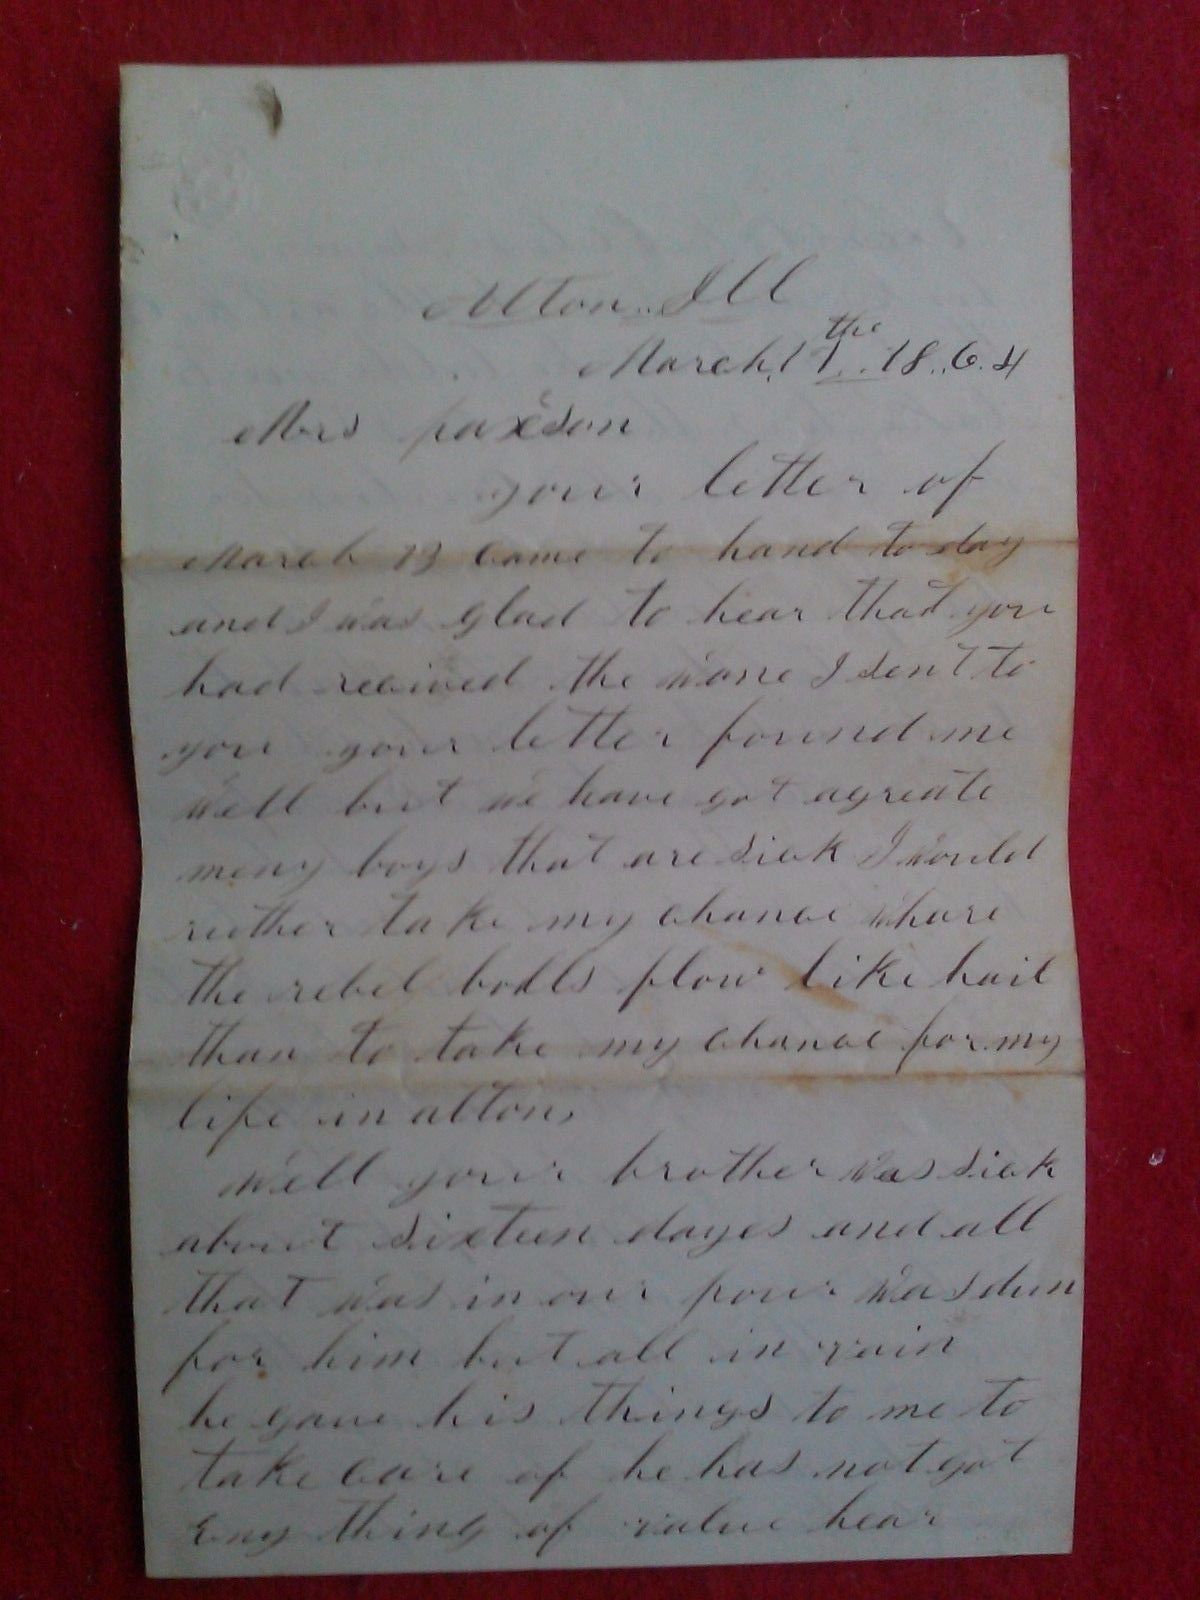 Alton.. Ill
March, 17the.. 18..6.4
Mrs paxson
your letter of
March 13 came to hand to day
and I was glad to hear that you
had recived the wone I sent to
you your letter found me
well but we have got agreate
meny boys that are sick I would
ruther take my chance whare
the rebel bolls flow like hail
than to take my chance for my
life in alton,
Well your brother was sick
about sixteen dayes and all
that was in our powr was dun
for him but all in vain
he gave his things to me to
take care of he has not got
Eny thing of value hear